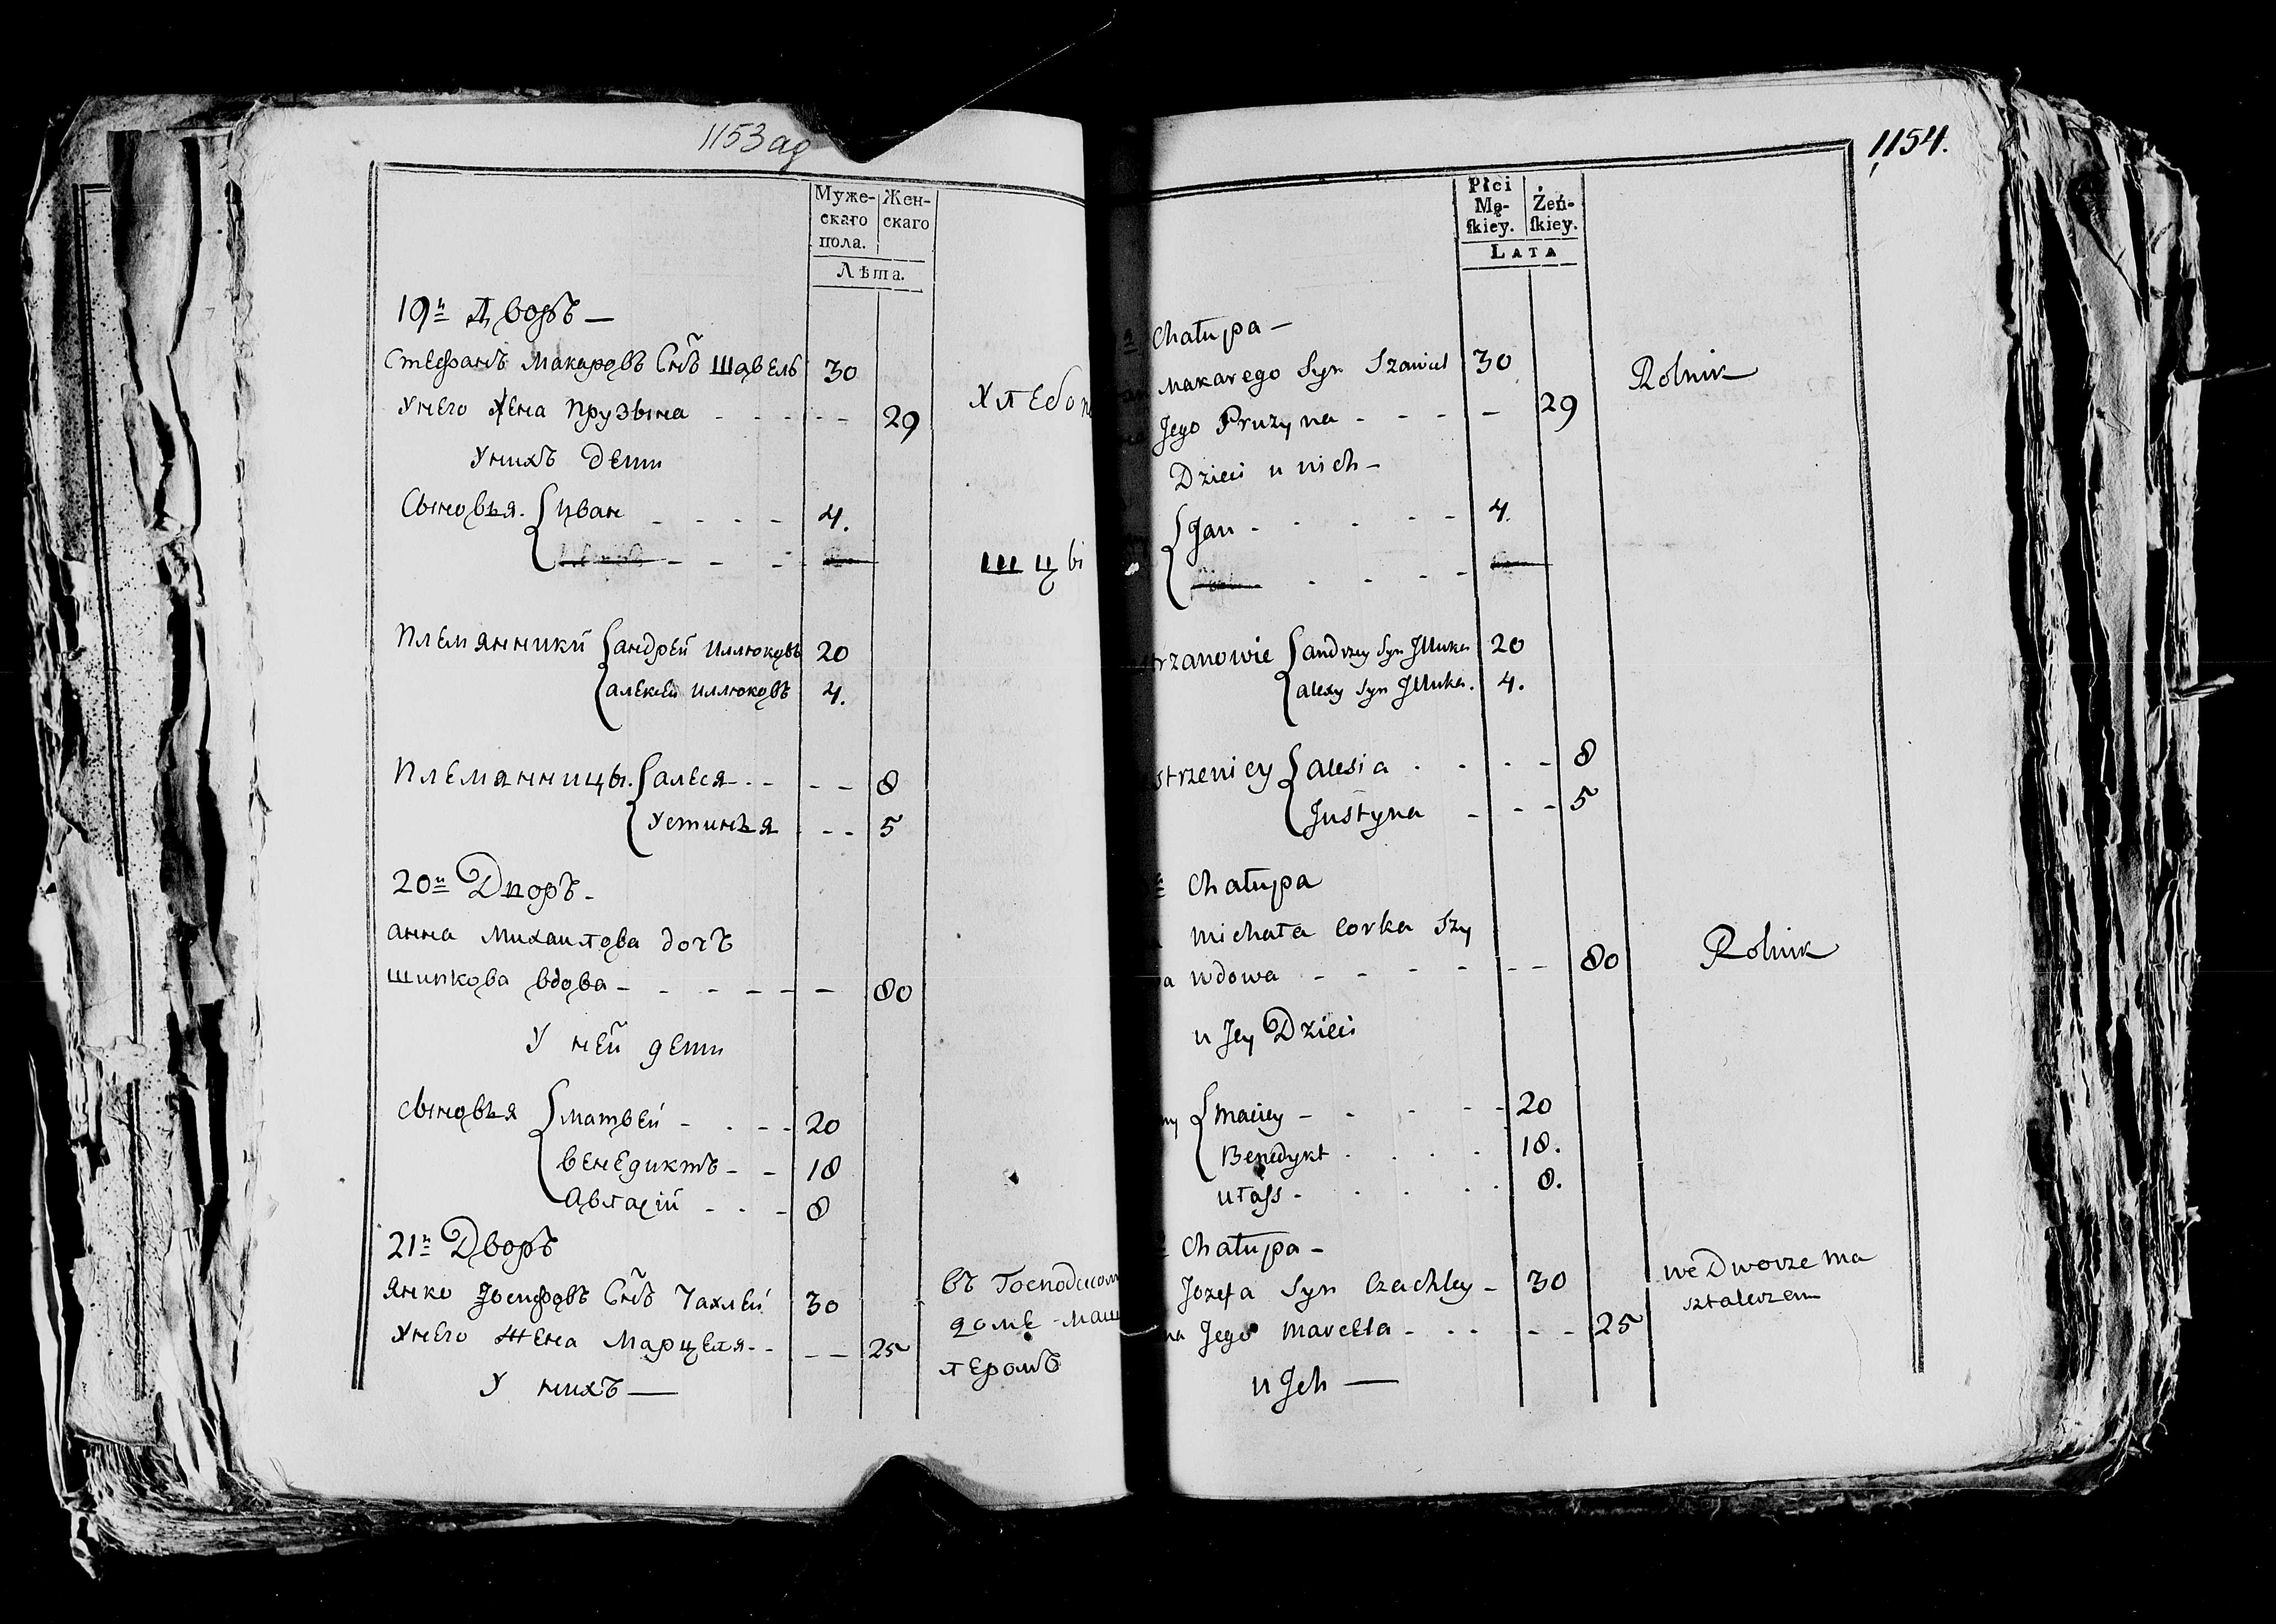 1153 ад
Муже-
скаго
пола.
Жен-
скаго
Лѣта.
19й Дворъ —
Стефанъ Макаровъ Снъ Шавель 30
Унего Жена Прузына - - - - - - 29
Хлебо
Унихъ дети
Сыновья. Иван - - - - 4.
шцы
Племянники Андрей Иллюковъ 20
Алексей Иллюковъ 4.
Племянницы. Алеся - - - - 8
Устинья - - - 5
20й Дворъ -
Анна Михаилова дочь
Шипкова вдова - - - - - - - 80
У ней дети
Сыновья Матвей - - - - 20
Венедиктъ - - 18
Авласій - - - 8
21й Дворъ
Янко Іосифовъ Снъ Чахлей 30
Унего Жена Марцеля - - - - 25
У нихъ —
въ Господском
доме маш
леромъ
1154.
Płci
Mę-
ſkiey.
Żeń-
ſkiey.
LATA
Chałupa —
Makarego Syn Szawiel 30
Rolnik
Jego Pruzyna - - - - - 29
Dzieci u nich -
Jan - - - - - 4.
rzanowie Andrzey Syn Illuka 20
Alexy Syn Illuka. 4.
strzenicy Alesia - - - - 8
Justyna - - - 5
Chałupa
Michała Corka Szy
a wdowa - - - - - - 80
Rolnik
u Jey Dzieci
Maciey - - - - - 20
Benedykt - - - - 18.
Ułass - - - - - 8.
Chałupa -
Jozefa Syn Czachley - 30
we Dworze ma
sztalerzem
na Jego Marcella - - - - - 25
u Ich —